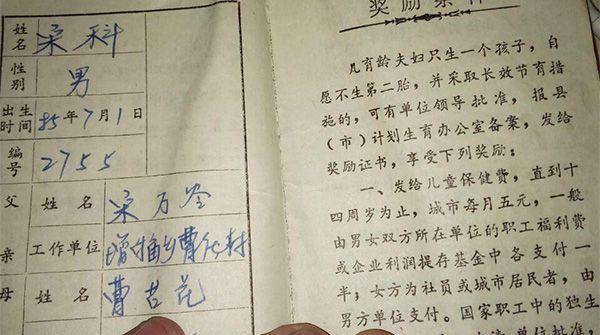 姓名 宋科
性别 男
出生时间 85年7月1日
编号 2755
父亲 姓名 宋万
工作单位 增福乡曹化村
母 姓名 曹
奖励条件
凡育龄夫妇只生一个孩子，自
愿不生第二胎，并采取长效节育措
施的，可有单位领导批准，报县
（市）计划生育办公室备案，发给
奖励证书，享受下列奖励：
一、发给儿童保健费，直到十
四周岁为止，城市每月五元，一般
由男女双方所在单位的职工福利费
或企业利润提存基金中各支付一
半；女方为社员或城市居民者，由
男方单位支付。国家职工中的独生